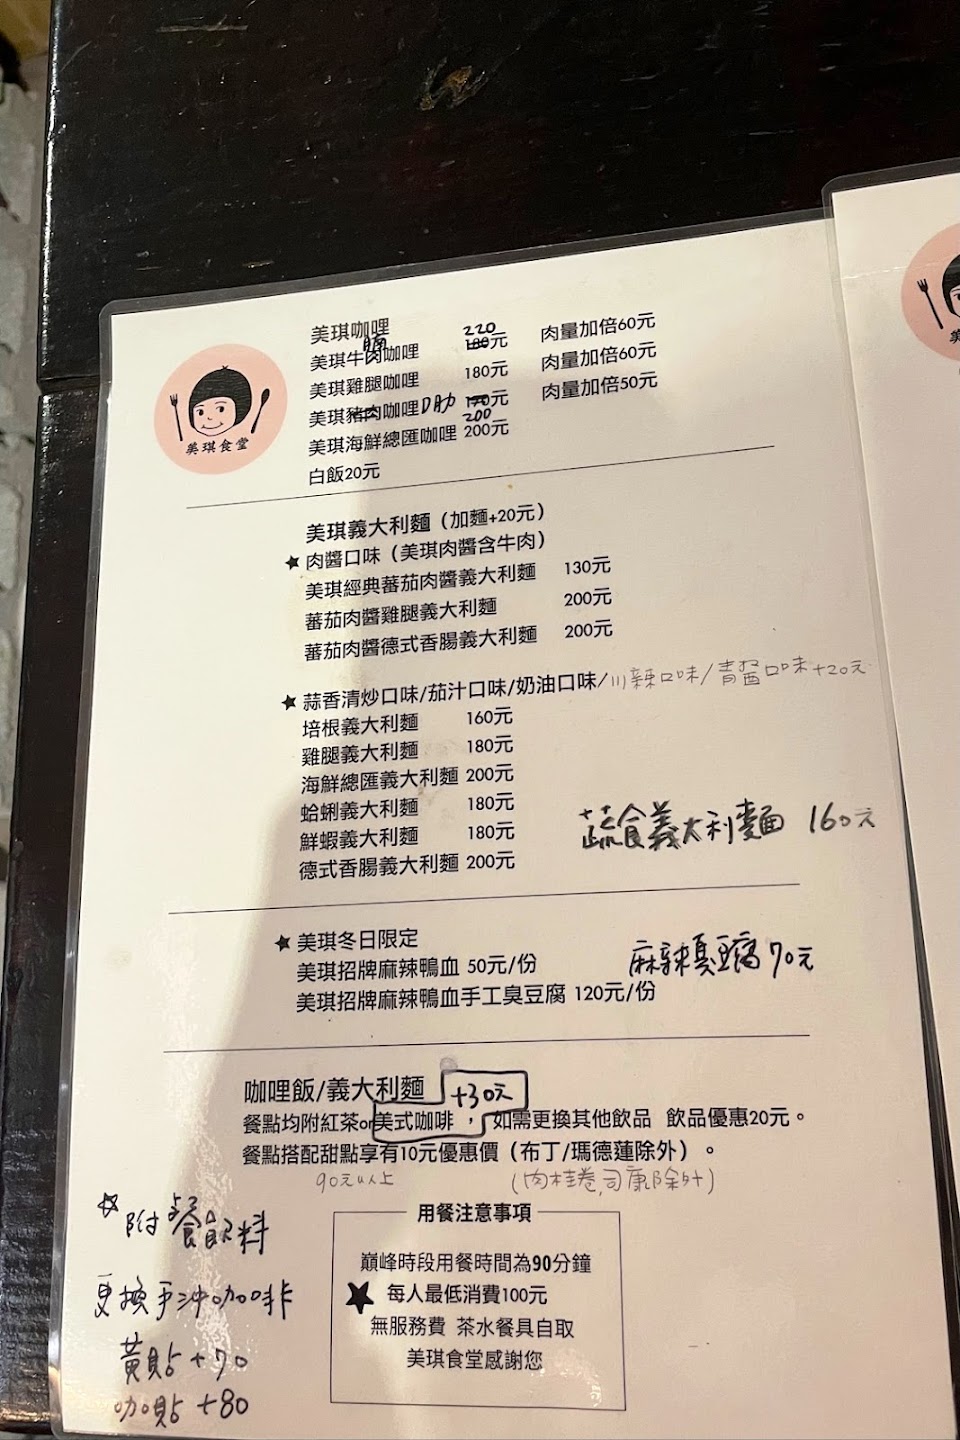 美琪食堂
美琪咖哩
美琪牛腩咖哩 220元 肉量加倍60元
美琪雞腿咖哩 180元 肉量加倍60元
美琪咖哩D肋 200元 肉量加倍50元
美琪海鮮總匯咖哩 200元
白飯20元
美琪義大利麵（加麵+20元）
★肉醬口味（美琪肉醬含牛肉）
美琪經典蕃茄肉醬義大利麵 130元
蕃茄肉醬雞腿義大利麵 200元
蕃茄肉醬德式香腸義大利麵 200元
★蒜香清炒口味/茄汁口味/奶油口味/川辣口味/青醬口味+20元
培根義大利麵 160元
雞腿義大利麵 180元
海鮮總匯義大利麵 200元
蛤蜊義大利麵 180元
鮮蝦義大利麵 180元
德式香腸義大利麵 200元
蔬食義大利麵 160元
★美琪冬日限定
美琪招牌麻辣鴨血 50元/份
美琪招牌麻辣鴨血手工臭豆腐 120元/份
麻辣臭豆腐70元
咖哩飯/義大利麵 +30元
餐點均附紅茶or美式咖啡，如需更換其他飲品 飲品優惠20元。
餐點搭配甜點享有10元優惠價（布丁/瑪德蓮除外）。
90元以上 (肉桂卷,司康除外)
☆附餐飲料
更換手沖咖啡
黃貼+70
咖貼+80
用餐注意事項
巔峰時段用餐時間為90分鐘
★每人最低消費100元
無服務費 茶水餐具自取
美琪食堂感謝您